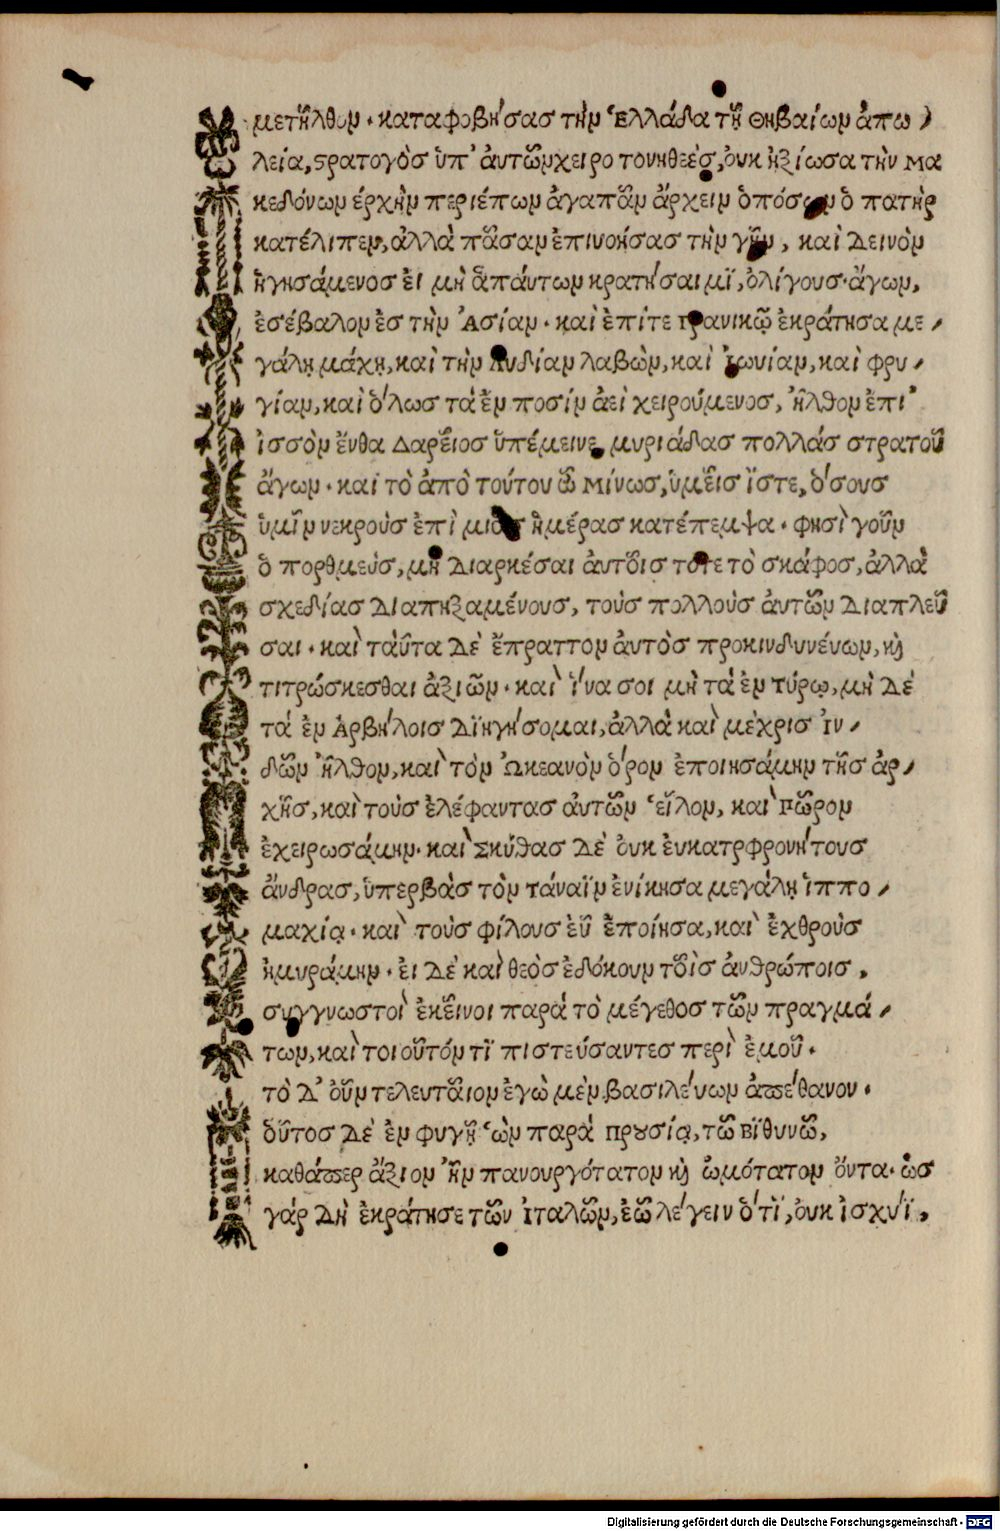 μετῆλθον · καταφοβήσας τὴν Ἑλλάδα τῇ Θηβαίων ἀπω
λεία, στρατογὸς ὑπ' ἀυτῶν χειροτονηθεὲς, ὀυκ ἠξίωσα τὴν Μα
κεδόνων ἐρχὴν περιέπων ἀγαπᾶν ἄρχειν ὁπόσων ὁ πατὴρ
κατέλιπεν, ἀλλὰ πᾶσαν ἐπινοήσας τὴν γῆν, καὶ δεινὸν
ἡγησάμενος ἐι μὴ ἁπάντων κρατήσαιμϊ, ὀλίγους · ἄγων,
ἐσέβαλον ἐς τὴν Ἀσίαν · καὶ ἐπίτε Γρανικῷ ἐκράτησα με
γάλῃ μάχῃ, καὶ τὴν Λυδίαν λαβὼν, καὶ Ἰωνίαν, καὶ φρυ
γίαν, καὶ ὅλως τὰ ἐν ποσίν ἀεὶ χειρούμενος, ἦλθον ἐπι'
ἰσσὸν ἔνθα Δαρεῖος ὑπέμεινε, μυριάδας πολλάς στρατοῦ
ἄγων · και τὸ ἀπὸ τούτου ὦ Μίνωσ, ὑμεῖς ἴστε, ὅσους
ὑμῖν νεκροὺς ἐπὶ μιᾶς ἡμέρας κατέπεμψα · φησὶ γοῦν
ὁ πορθμεὺς, μὴ διαρκέσαι ἀυτοῖς τότε τὸ σκάφος, ἀλλὰ
σχεδίας διαπηξαμένους, τοὺς πολλοὺς ἀυτῶν διαπλεῦ
σαι · καὶ ταῦτα δὲ ἔπραττον ἀυτὸς προκινδυνέυων, κὶ
τιτρώσκεσθαι ἀξιῶν · καὶ ἵνα σοι μὴ τὰ ἐν τύρῳ, μὴ δὲ
τά ἐν Ἀρβήλοις διηγήσομαι, ἀλλὰ καὶ μὲχρις Ἰν
δῶν ἦλθον, καὶ τὸν Ὠκεανὸν ὅρον ἐποιησάμην τῆς ἀρ
χῆς, καὶ τοὺς ἐλέφαντας ἀυτῶν εἷλον, καὶ Πῶρον
ἐχειρωσάμην · καὶ Σκύθας δὲ ὀυκ ἐυκατρφρονήτους
ἄνδρας, ὑπερβὰς τὸν τάναϊν ἐνίκησα μεγάλῃ ἱππο
μαχίᾳ · καὶ τοὺς φίλους ἐῦ ἐποίησα, καὶ ἐχθροὺς
ἠμυράμην · ἐι δὲ καὶ θεὸς ἐδόκουν τοῖς ἀνθρώποις,
συγγνωστοὶ ἐκεῖνοι παρά τὸ μέγεθος τῶν πραγμά
των, καὶ τοιοῦτόν τϊ πιστεύσαντες περὶ ἐμοῦ ·
τὸ δ' ὀῦν τελευταῖον ἐγὼ μὲν βασιλέυων ἀπέθανον ·
ὁῦτος δὲ ἐν φυγῇ ὢν παρά Προυσίᾳ, τῶ Βϊθυνῶ,
καθάπερ ἄξιον ἦν πανουργότατον κὶ ὠμότατον ὄντα · ὡς
γάρ δὴ ἐκράτησε τῶν Ἰταλῶν, ἐῶ λέγειν ὅτϊ, ὀυκ ἰσχύϊ,